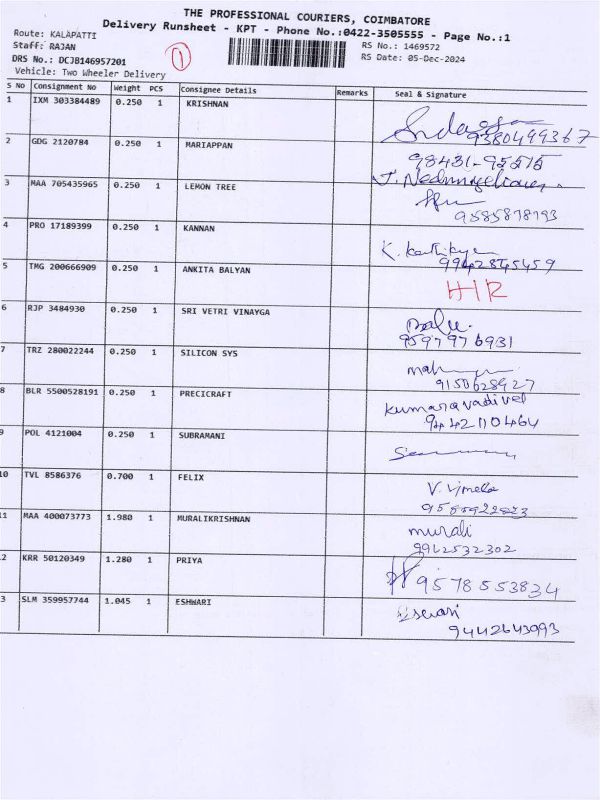 THE PROFESSIONAL COURIERS, COIMBATORE
Delivery Runsheet - KPT - Phone No.:0422-3505555 - Page No.:1
Route: KALAPATTI
Staff: RAJAN
DRS No.: DCJB146957201
Vehicle: Two Wheeler Delivery
1
RS No.: 1469572
RS Date: 05-Dec-2024
S No Consignment No Weight PCS Consignee Details Remarks Seal & Signature
1 IXM 303384489 0.250 1 KRISHNAN
9380499367
2 GDG 2120784 0.250 1 MARIAPPAN
98431-95515
3 MAA 705435965 0.250 1 LEMON TREE
9585878793
4 PRO 17189399 0.250 1 KANNAN
K. Karthikyan
9942845459
5 TMG 200666909 0.250 1 ANKITA BALYAN
HIR
6 RJP 3484930 0.250 1 SRI VETRI VINAYGA
Balu.
9597976931
7 TRZ 280022244 0.250 1 SILICON SYS
9150628927
8 BLR 5500528191 0.250 1 PRECICRAFT
Kumaravadivel
9442110464
9 POL 4121004 0.250 1 SUBRAMANI
10 TVL 8586376 0.700 1 FELIX
V. Vimela
11 MAA 400073773 1.980 1 MURALIKRISHNAN
murali
9942532302
2 KRR 50120349 1.280 1 PRIYA
9578553834
3 SLM 359957744 1.045 1 ESHWARI
9442643093